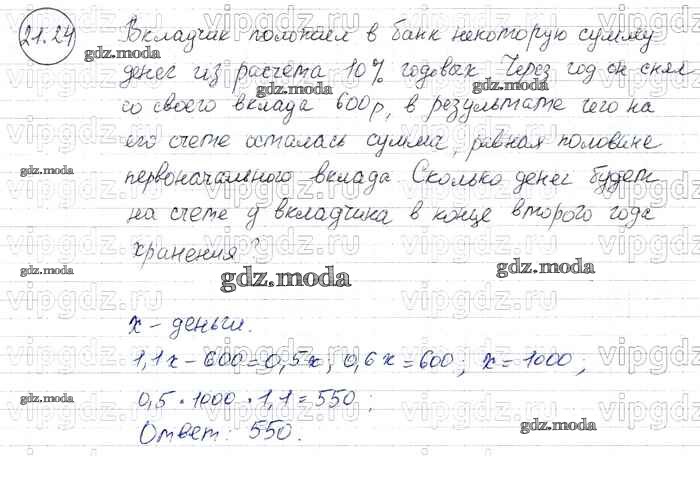 21.24
Вкладчик положил в банк некоторую сумму
денег из расчета 10% годовых Через год он снял
со своего вклада 600р, в результате чего на
его счете осталась сумма, равная половине
первоначального вклада. Сколько денег будет
на счете у вкладчика в конце второго года
хранения?
x - деньги.
1,1x - 600 = 0,5x; 0,6x = 600; x = 1000;
0,5 * 1000 * 1,1 = 550;
Ответ: 550.
gdz.moda
vipgdz.ru